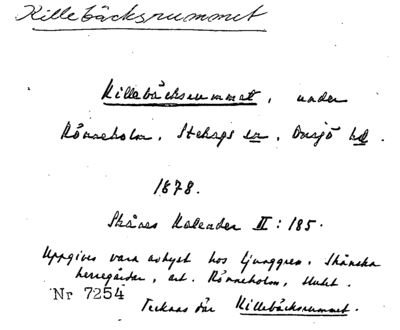 Killebäcksrummet
Killebäcksrummet, under
Rönneholm, Stehags sn, Onsjö hd.
1878.
Skånes Kalender II: 185.
Uppgives vara avhyst hos Ljunggren. Skånska
herregårdar, art. Rönneholm, slutet.
Nr 7254
Tecknas där Killebäcksrummet.